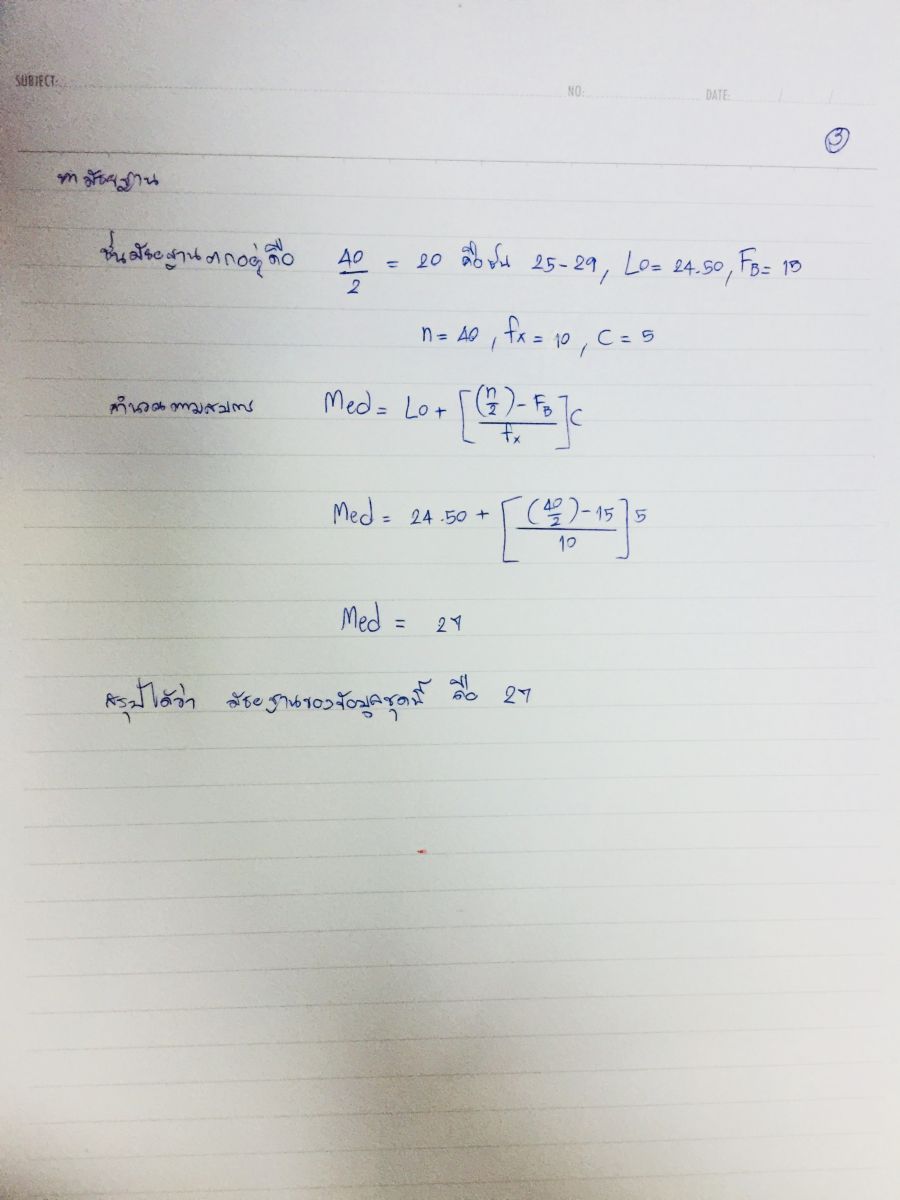 SUBJECT:
NO: DATE: / /
3
หามัธยฐาน
ชั้นมัธยฐานตกอยู่คือ 40/2 = 20 คือชั้น 25-29, Lo = 24.50, FB = 15
n = 40, fx = 10, C = 5
คำนวณตามสมการ Med = Lo + [((n/2) - FB)/fx] C
Med = 24.50 + [((40/2) - 15)/10] 5
Med = 27
สรุปได้ว่า มัธยฐานของข้อมูลชุดนี้ คือ 27